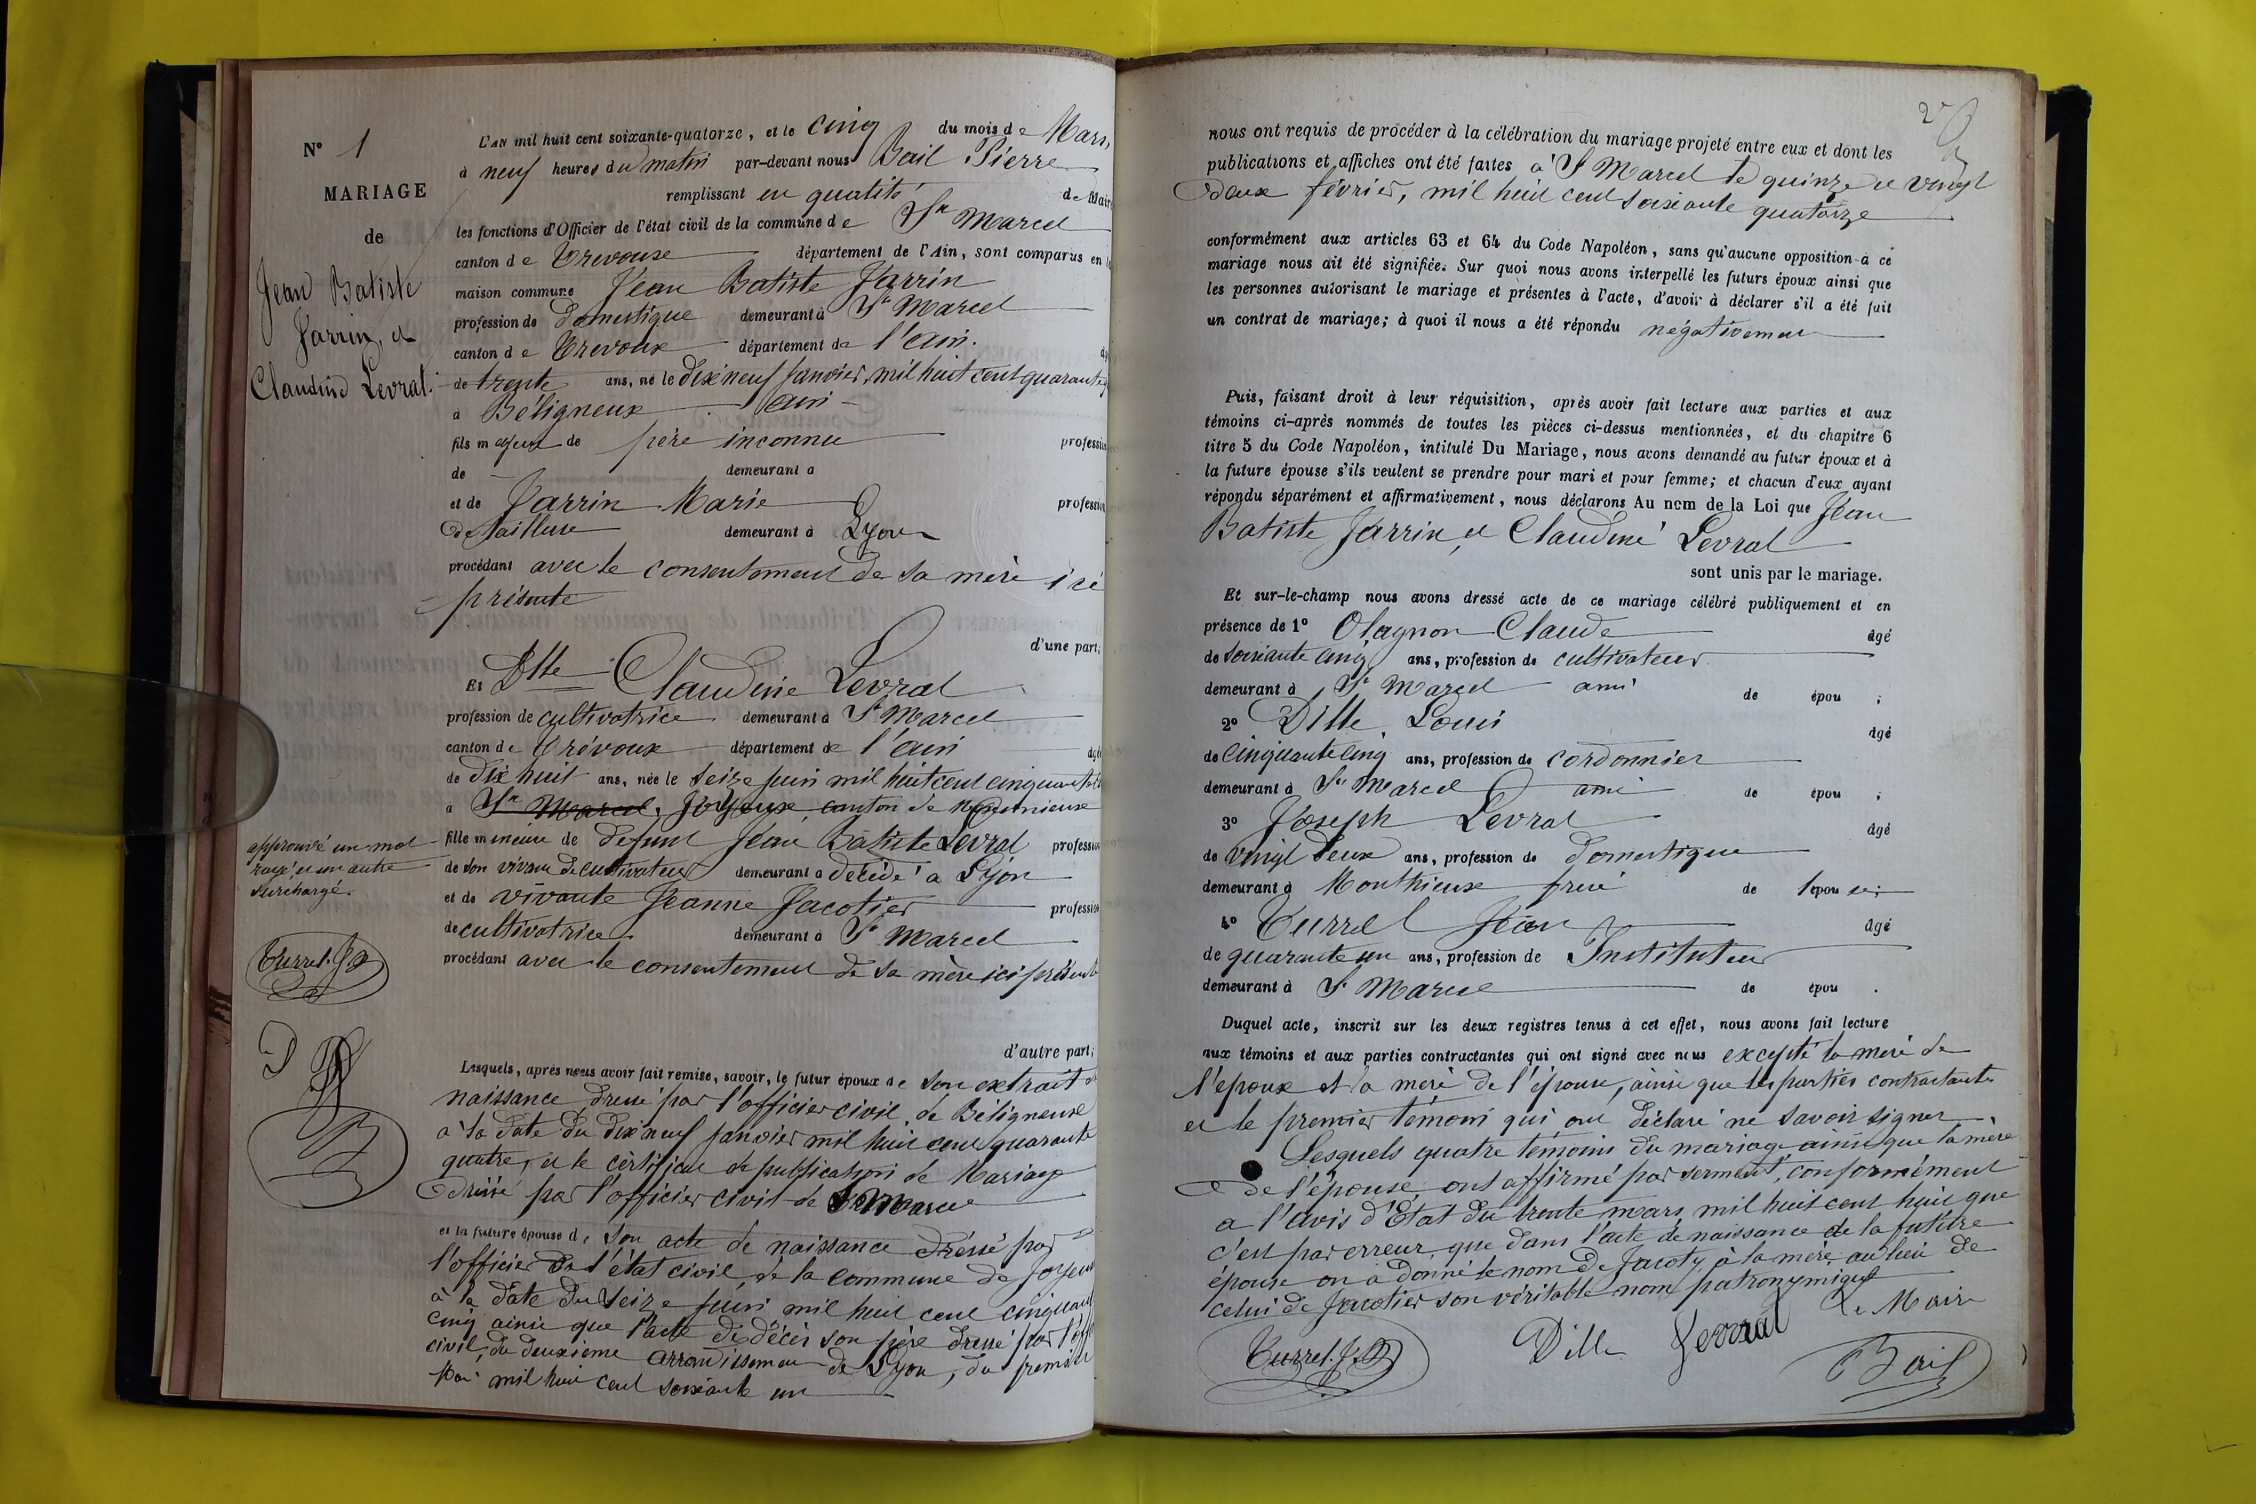 N° 1
MARIAGE
de
Jean Batiste
Jarrin, et
Claudine Levrat.
L'AN mil huit cent soixante-quatorze, et le cinq du mois de Mars,
à neuf heures du matin par-devant nous Bail Pierre
remplissant en qualité de Maire
les fonctions d'Officier de l'état civil de la commune de St Marcel
canton de Trevoux département de l'Ain, sont comparus en la
maison commune Jean Batiste Jarrin
profession de domestique demeurant à St Marcel
canton de Trevoux département de l'ain. âgé
de trente ans, né le dix neuf janvier, mil huit cent quarante
a Béligneux ain
fils majeur de père inconnu profession
de demeurant a
et de Jarrin Marie profession
de tailleuse demeurant à Lyon
procédant avec le consentement de sa mère ici
présente
d'une part;
Et Dlle Claudine Levrat
profession de cultivatrice demeurant à St Marcel
canton de Trévoux département de l'ain âgée
de dix huit ans, née le seize juin mil huit cent cinquante
a St Marcel, Joyeux, canton de
fille mineure de defunt Jean Batiste Levrat profession
de son vivant de cultivateur demeurant a décédé à Lyon
et de vivante Jeanne Jacotier profession
de cultivatrice demeurant à St Marcel
procédant avec le consentement de sa mère ici présente
approuvé un mot
rayé et un autre
surchargé.
Turrel. J
d'autre part;
Lesquels, après nous avoir fait remise, savoir, le futur époux de son extrait de
naissance dressé par l'officier civil de Béligneux
à la date du dix neuf janvier mil huit cent quarante
quatre, et le certificat de publication de Mariage
dressé par l'officier civil de St Marcel
et la future épouse de son acte de naissance dressé par
l'officier de l'état civil de la commune de Joyeux
à la date du seize juin mil huit cent cinquante
cinq ainsi que l'acte de décès son père dressé par l'off
civil, du deuxième arrondissement de Lyon, du premier
mil huit cent soixante un
2e
nous ont requis de procéder à la célébration du mariage projeté entre eux et dont les
publications et affiches ont été faites à St Marcel le quinze et vingt
deux février, mil huit cent soixante quatorze
conformément aux articles 63 et 64 du Code Napoléon, sans qu'aucune opposition à ce
mariage nous ait été signifiée. Sur quoi nous avons interpellé les futurs époux ainsi que
les personnes autorisant le mariage et présentes à l'acte, d'avoir à déclarer s'il a été fait
un contrat de mariage; à quoi il nous a été répondu négativement
Puis, faisant droit à leur réquisition, après avoir fait lecture aux parties et aux
témoins ci-après nommés de toutes les pièces ci-dessus mentionnées, et du chapitre 6
titre 5 du Code Napoléon, intitulé Du Mariage, nous avons demandé au futur époux et à
la future épouse s'ils veulent se prendre pour mari et pour femme; et chacun d'eux ayant
répondu séparément et affirmativement, nous déclarons Au nom de la Loi que Jean
Batiste Jarrin et Claudine Levrat
sont unis par le mariage.
Et sur-le-champ nous avons dressé acte de ce mariage célébré publiquement et en
présence de 1° Olagnon Claude âgé
de soixante cinq ans, profession de cultivateur
demeurant à St Marcel ami de épou ;
2° Dille Louis âgé
de cinquante cinq ans, profession de cordonnier
demeurant à St Marcel ami de épou ;
3° Joseph Levrat âgé
de vingt deux ans, profession de domestique
demeurant à Monthieux frère de l'épouse;
4° Turrel Jean âgé
de quarante un ans, profession de Instituteur
demeurant à St Marcel de épou .
Duquel acte, inscrit sur les deux registres tenus à cet effet, nous avons fait lecture
aux témoins et aux parties contractantes qui ont signé avec nous excepté la mère de
l'époux et la mère de l'épouse, ainsi que les parties contractantes
et le premier témoin qui ont déclaré ne savoir signer.
Lesquels quatre témoins du mariage ainsi que la mère
de l'épouse ont affirmé par serment, conformément
a l'avis d'Etat du trente mars mil huit cent huit que
c'est par erreur, que dans l'acte de naissance de la future
épouse on a donné le nom de Jacoty à la mère au lieu de
celui de Jacotier son véritable nom patronymique
Le Maire
Turrel. J Dille Levrat Bail